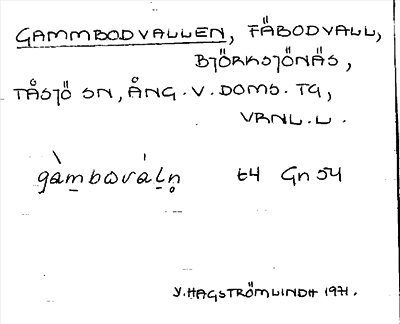 GAMMBODVALLEN, FÄBODVALL,
BJÖRKSJÖNÄS,
TÅSJÖ SN, ÅNG. V. DOMS. TG,
VRNL. L.
gàm̲bωváḻn̥ t4 Gn 54
Y. HAGSTRÖMLINDH 1971.